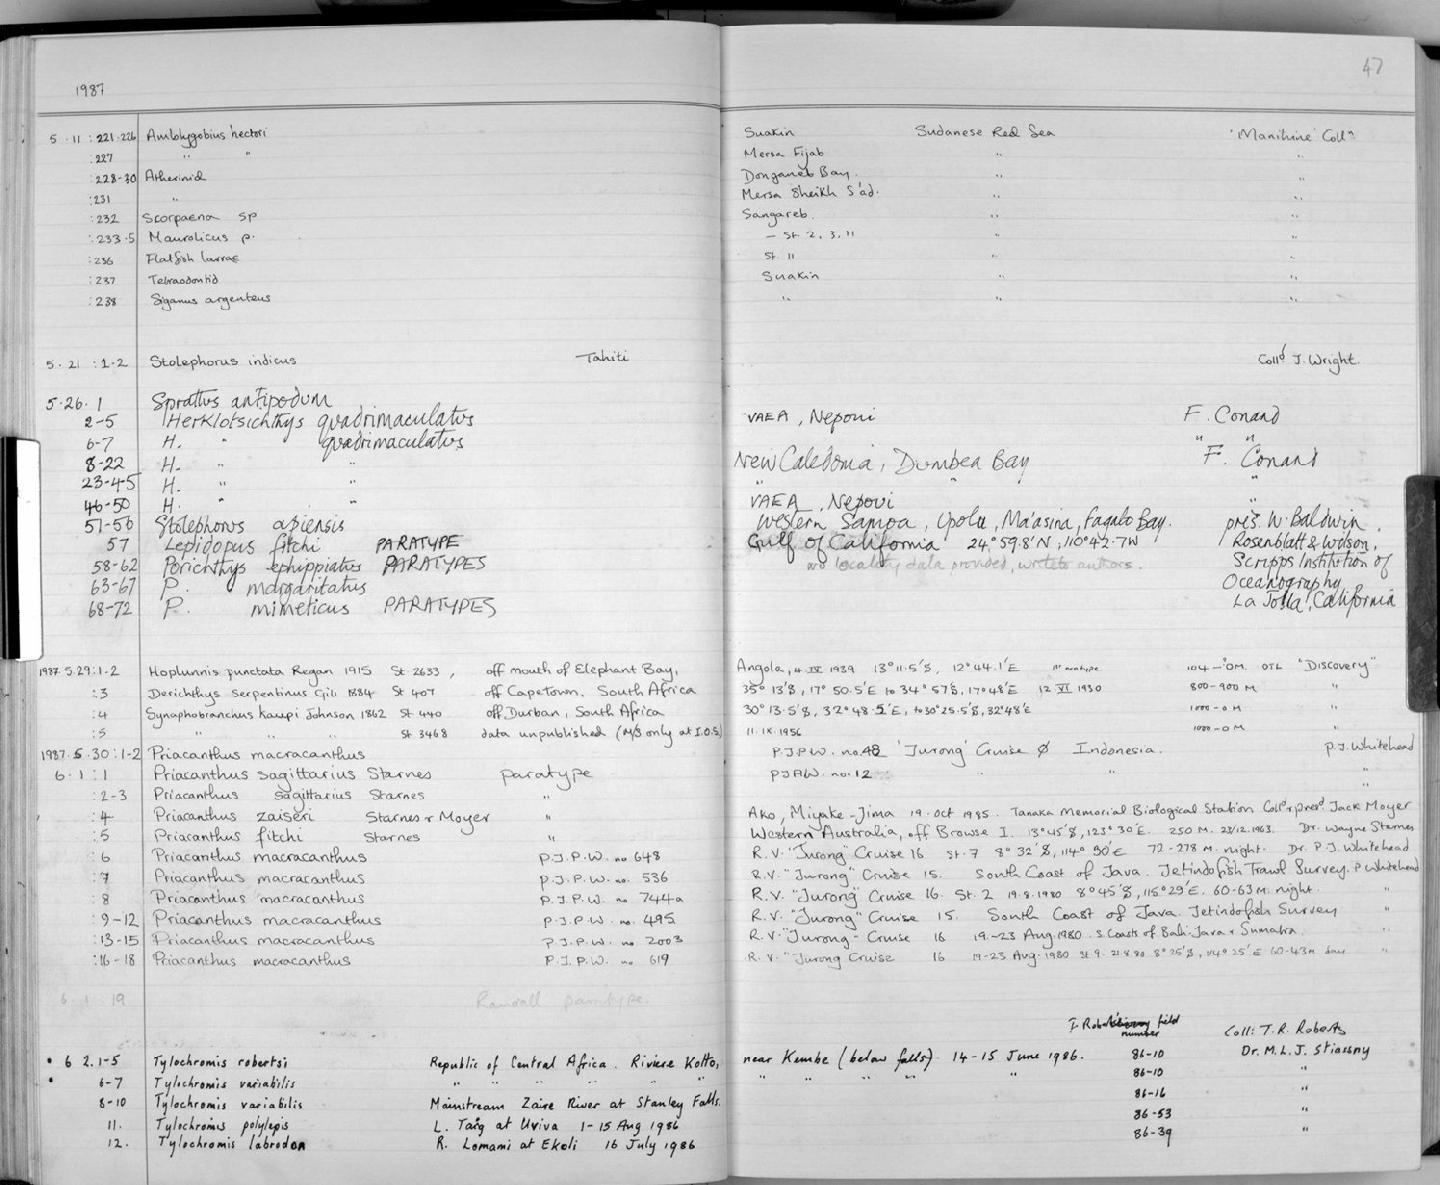 47
1987
5.11 :221-226 Amblygobius hectori Suakin Sudanese Red Sea 'Manihine' Colln
:227 " " Mersa Fijab " "
:228-30 Atherinid Donganeb Bay. " "
:231 " Mersa Sheikh S'ad. " "
:232 Scorpaena sp Sangareb. " "
:233-5 Maurolicus p. – St 2, 3, 11 " "
:236 Flatfish larvae St 11 " "
:237 Tetraodontid Suakin " "
:238 Siganus argenteus " " "
5.21 :1-2 Stolephorus indicus Tahiti Colld J. Wright.
5.26.1 Sprattus antipodum
2-5 Herklotsichthys quadrimaculatus VAEA, Nepoui F. Conand
6-7 H. " quadrimaculatus " "
8-22 H. " " New Caledonia, Dumbea Bay F. Conand
23-45 H. " " " " "
46-50 H. " " VAEA, Nepoui "
51-56 Stolephorus apiensis Western Samoa, Upolu, Ma'asina, Fagalo Bay. pres. W. Baldwin.
57 Lepidopus fitchi PARATYPE Gulf of California 24°59.8'N, 110°42.7W Rosenblatt & Wilson,
58-62 Porichthys ephippiatus PARATYPES no locality data provided, write to authors. Scripps Institution of
63-67 P. margaritatus Oceanography
68-72 P. mimeticus PARATYPES La Jolla, California
1987.5.29:1-2 Hoplunnis punctata Regan 1915 St. 2633, off mouth of Elephant Bay, Angola, 4 IX 1939 13°11.5'S, 12°44.1'E 104-0M. OTL "Discovery"
:3 Derichthys serpentinus Gill 1884 St 407 off Capetown. South Africa 35°13'S, 17°50.5'E to 34°57'S, 17°48'E 12 VI 1930 800-900 M "
:4 Synaphobranchus kaupi Johnson 1862 St 440 off Durban, South Africa 30°13.5'S, 32°48.5'E, to 30°25.5'S, 32°48'E 1000-0 M "
:5 " " " St 3468 data unpublished (M/S only at I.O.S) 11.IX.1956 1000-0 M "
1987.5.30:1-2 Priacanthus macracanthus P.J.P.W. no. 48 'Jurong' Cruise Ø Indonesia. P.J. Whitehead
6.1:1 Priacanthus sagittarius Starnes paratype PJPW. no. 12 " " "
:2-3 Priacanthus sagittarius Starnes "
:4 Priacanthus zaiseri Starnes & Moyer " Ako, Miyake-Jima 19.Oct 1985. Tanaka Memorial Biological Station Colld & presd Jack Moyer
:5 Priacanthus fitchi Starnes " Western Australia, off Browse I. 13°45'S, 123°30'E. 250 M. 23/12.1963. Dr. Wayne Starnes
:6 Priacanthus macracanthus P.J.P.W. no 648 R.V. "Jurong" Cruise 16 St.7 8°32'S, 114°30'E 72-278 M. night. Dr. P.J. Whitehead
:7 Priacanthus macracanthus P.J.P.W. no. 536 R.V. "Jurong" Cruise 15. South Coast of Java. Jetindofish Trawl Survey. P Whitehead
:8 Priacanthus macracanthus P.J.P.W. no. 744a R.V. "Jurong" Cruise 16. St. 2 19.8.1980 8°45'S, 115°29'E. 60-63M. night. "
:9-12 Priacanthus macracanthus P.J.P.W. no. 495 R.V. "Jurong" Cruise 15. South Coast of Java. Jetindofish Survey "
:13-15 Priacanthus macracanthus P.J.P.W. no 2003 R.V. "Jurong" Cruise 16 19-23 Aug 1980. S. Coasts of Bali-Java & Sumatra. "
:16-18 Priacanthus macracanthus P.J.P.W. no 619 R.V. "Jurong Cruise 16 19-23 Aug. 1980 St 9. 21.8.80 8°25'S, 114°25'E 60-43m day "
6.1:19 Randall paratype.
T. Roberts field number Coll: T. R. Roberts
6 2.1-5 Tylochromis robertsi Republic of Central Africa. Riviere Kotto, near Kembe (below falls). 14-15 June 1986. 86-10 Dr. M.L.J. Stiassny
6-7 Tylochromis variabilis " " " " " " " " " " 86-10 "
8-10 Tylochromis variabilis Mainstream Zaire River at Stanley Falls. 86-16 "
11. Tylochromis polylepis L. Tang at Uviva 1-15 Aug 1986 86-53 "
12. Tylochromis labrodon R. Lomami at Ekoli 16 July 1986 86-39 "